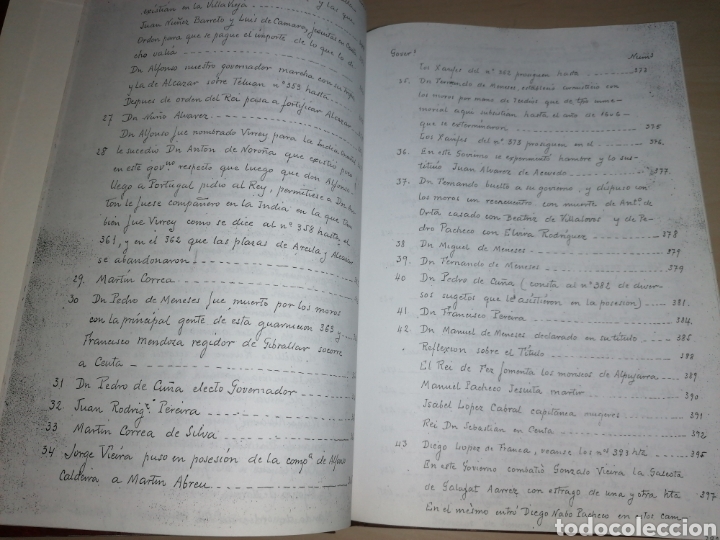 existian en la Villa Vieja
Juan Nuñez Barreto y Luis de Camara,
Orden para que se pague el importe de lo que lo de
cho valia
Dn Alfonso nuestro governador marcha con su
y la de Alcazar sobre Tetuan nº 352 hasta
Despues de orden del Rei pasa a fortificar Alcazar
27 Dn Nuño Alvarez
Dn Alfonso fue nombrado Virrey para la India
28 le sucedio Dn Anton de Noroña que
en este govno respecto que luego que don Alfonso
llego a Portugal pedio al Rey, permitiese a Dn
ton le fuese compañero en la India en la que
bien fue Virrey como se dice al nº 358 hasta el
361, y en el 362 que las plazas de Arcila y Alcazar
se abandonaron
29. Martin Correa
30 Dn Pedro de Meneses fue muerto por los moros
con la principal gente de esta guarnicion 363 y
Francisco Mendoza regidor de Gibraltar socorre
a Ceuta
31 Dn Pedro de Cuña electo Governador
32 Juan Rodrigz Pereira
33 Martin Correa de Silva
34 Jorge Vieira puso en posesión de la compa de Alfonso
Caldeira a Martin Abreu
Gover s Nums
los Xarifes del nº 362 prosiguen hasta 373
35. Dn Fernando de Meneses
los moros por mano de Judios que de
morial aqui subsistian hasta el año de
que se exterminaron 375
Los Xarifes del nº 373 prosiguen en el 376.
36. En este Govierno se experimentó hambre y le sus
tetuiuo Juan Alvarez de Acevedo 377.
37. Dn Fernando buelto a su govierno, y dispuso con
los moros un reencuentro con muerte de Anto de
Orta casado con Beatriz de Villalovos y de Pe
dro Pacheco con Elvira Rodriguez 378
38 Dn Miguel de Meneses 379
39. Dn Fernando de Meneses 379
40 Dn Pedro de Cuña (consta al nº 382 de diver
sos sugetos que le asistieron en la posesión) 381.
41. Dn Francisco Pereira 384.
42. Dn Manuel de Meneses declarado en su titulo 385
Reflexion sobre el Titulo 388
El Rei de Fez fomenta los moriscos de Alpujarra 389
Manuel Pacheco Jesuita martir 390
Isabel Lopez Cabral capitanea mugeres 391
Rei Dn Sebastian en Ceuta 392
43 Diego Lopez de Franca, veanse los nº 393 hta 395
En este Govierno combatió Gonzalo Vieira la Galeota
de Galafat Aarrez con estrago de una y otra hta 397
En el mismo entró Diego Nabo Pacheco en estos cam
todocoleccion